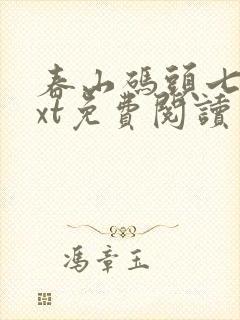 春山碼頭七
xt免費閱讀
馮章玉